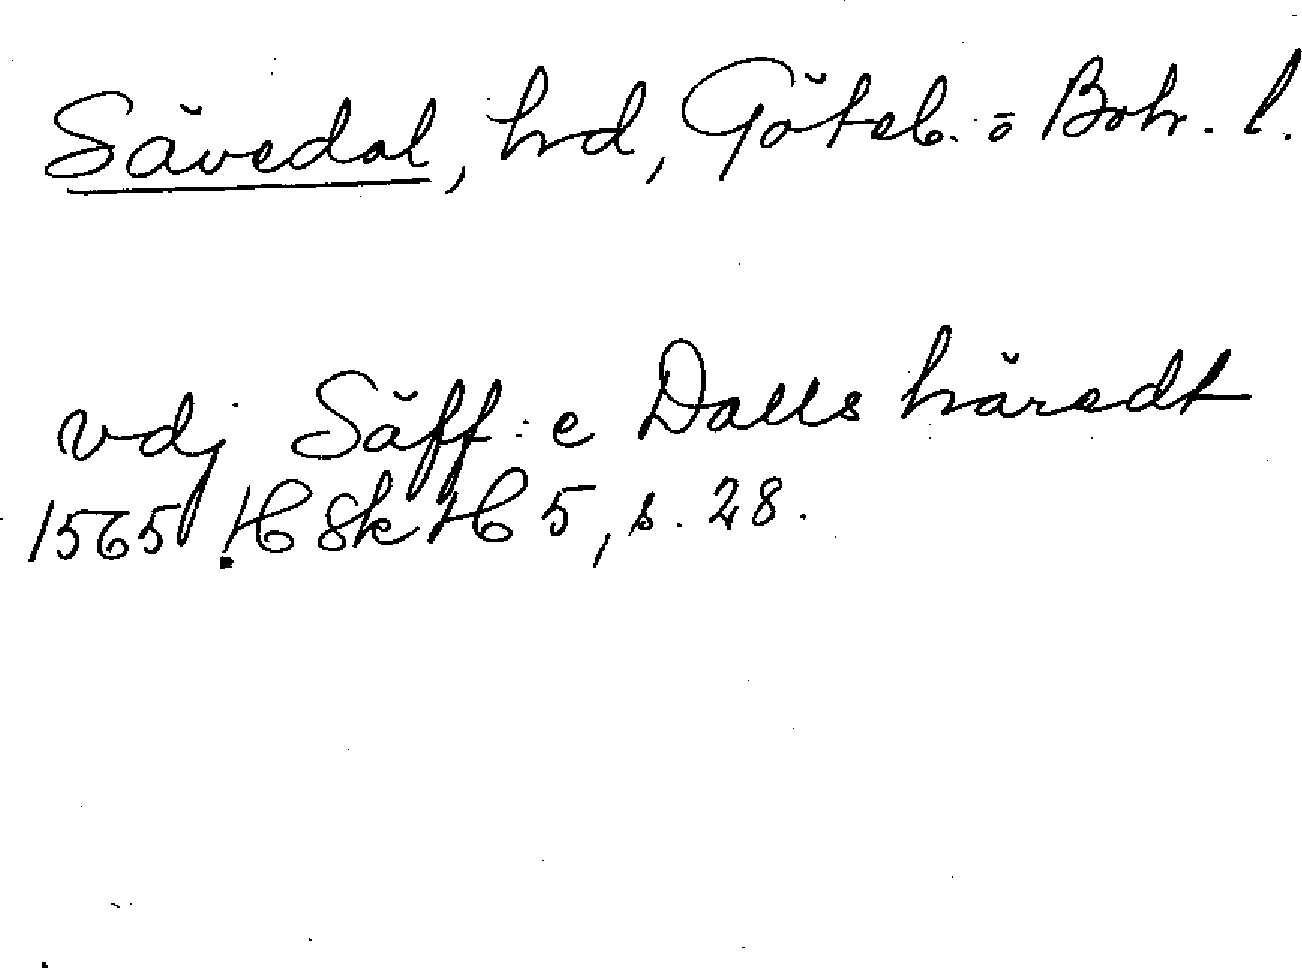 Sävedal, hrd, Göteb. o Boh. l.
vdj Säff:e Dalls häredt
1565 HSkH 5, s. 28.